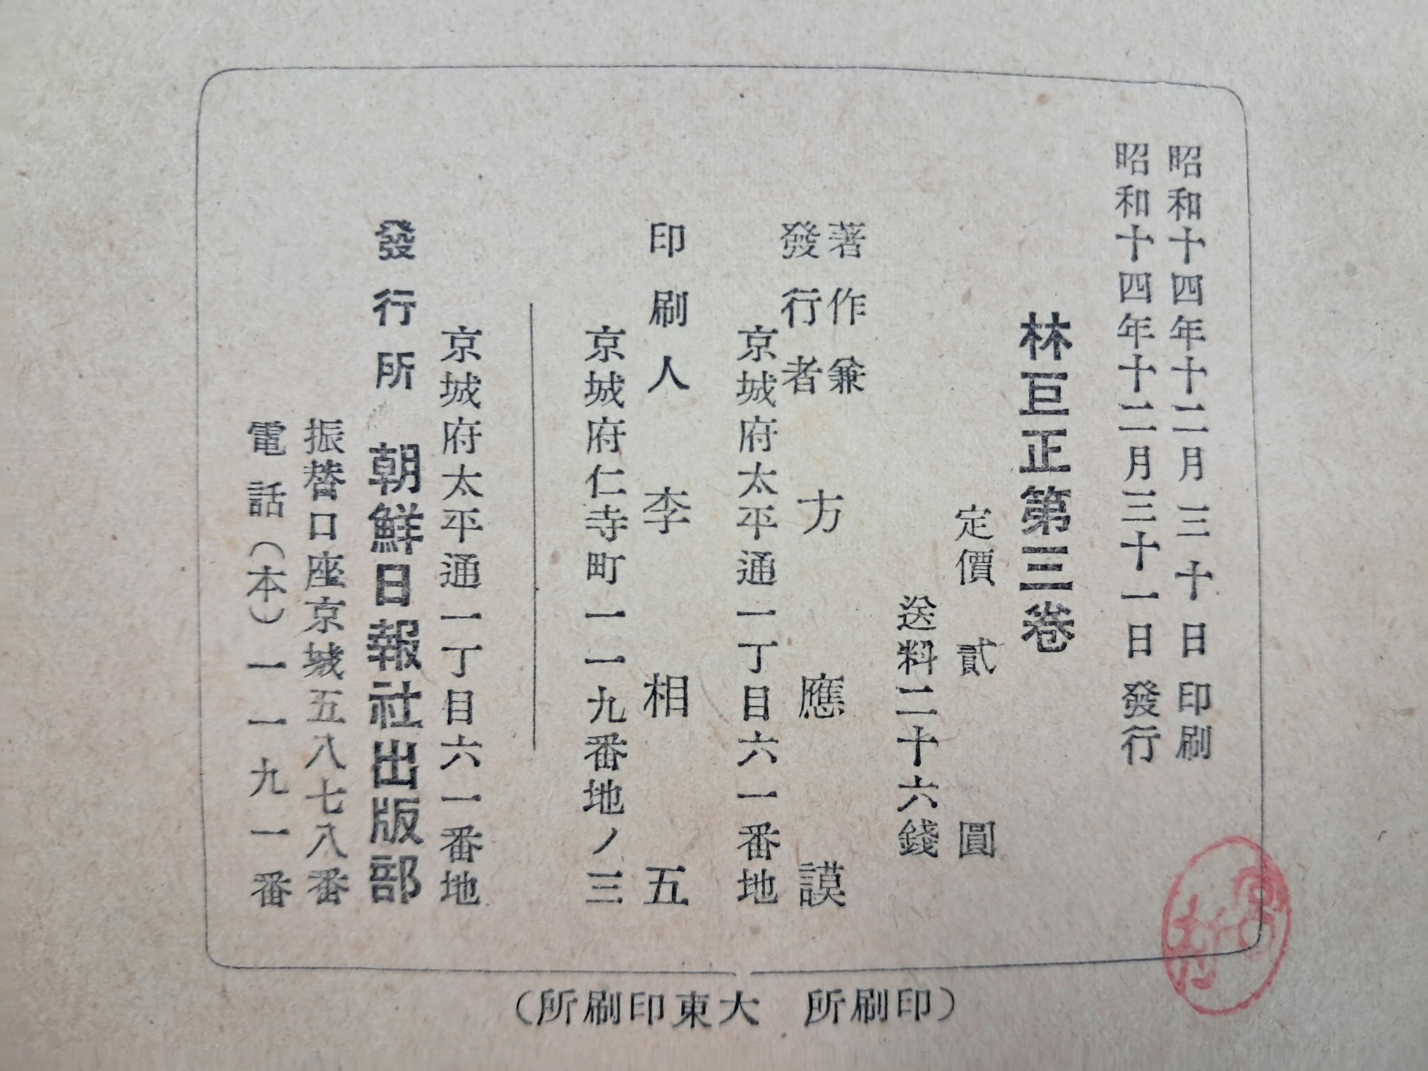 昭和十四年十二月三十日印刷
昭和十四年十二月三十一日發行
林巨正第三卷
定價貳圓
送料二十六錢
著作兼
發行者
方應謨
京城府太平通一丁目六一番地
印刷人 李相五
京城府仁寺町一一九番地ノ三
京城府太平通一丁目六一番地
發行所 朝鮮日報社出版部
振替口座京城五八七八番
電話(本)一一九一番
(印刷所 大東印刷所)